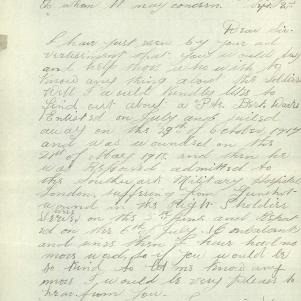 To whom it may concern. Sept 2nd
Dear Sir
I have just seen by your ad
vertisement that you would try
and help those who wish to
know any thing about the soldiers
Well I would kindly like to
find out about a Pte
Enlisted on July and sailed
away on the 29th of October 1917
and was wounded on the
21st of May 1918. and then he
was Reported admitted to
the Southwark Military Hospital
London suffering from Gunshot
wound in the Right Shoulder
Severe on the 5th June and
ed on the 6th July
and since then I have had no
more word, so if you would be
so kind to let me know any
more I would be very pleased to
hear from you.